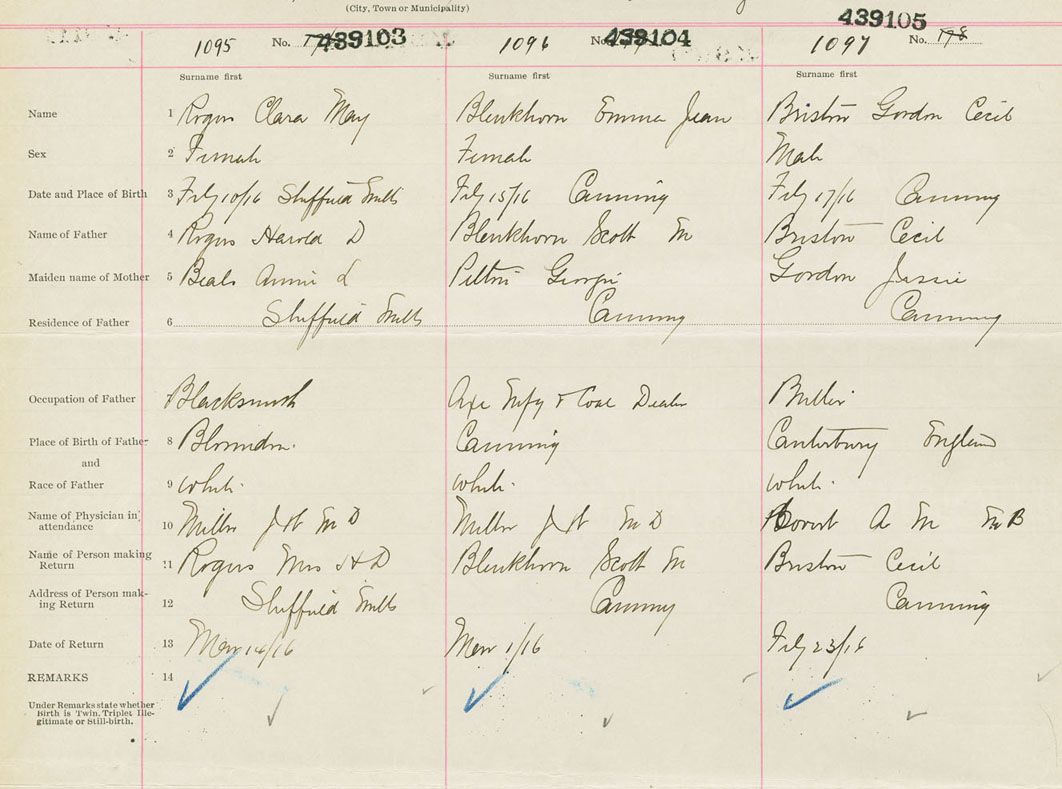 (City, Town or Municipality)
439105
1095 No. 439103 1096 No. 439104 1097 No. 178
Surname first Surname first Surname first
Name 1 Rogers Clara May Blenkhorn Emma Jean Briston Gordon Cecil
Sex 2 Female Female Male
Date and Place of Birth 3 Feby 10/16 Sheffield Mills Feby 15/16 Canning Feby 17/16 Canning
Name of Father 4 Rogers Harold D Blenkhorn Scott M Briston Cecil
Maiden name of Mother 5 Beals Annie L Georgie Gordon Jessie
Residence of Father 6 Sheffield Mills Canning Canning
Occupation of Father 7 Blacksmith Axe Mnfg & Coal Dealer
Place of Birth of Father 8 Canning Canterbury England
and
Race of Father 9 White White White
Name of Physician in attendance 10 Miller J W M D Miller J W M D A M M B
Name of Person making Return 11 Rogers Mrs H D Blenkhorn Scott M Briston Cecil
Address of Person making Return 12 Sheffield Mills Canning Canning
Date of Return 13 Mar 14/16 Mar 1/16 Feby 23/16
REMARKS 14
Under Remarks state whether
Birth is Twin, Triplet Ille-
gitimate or Still-birth.